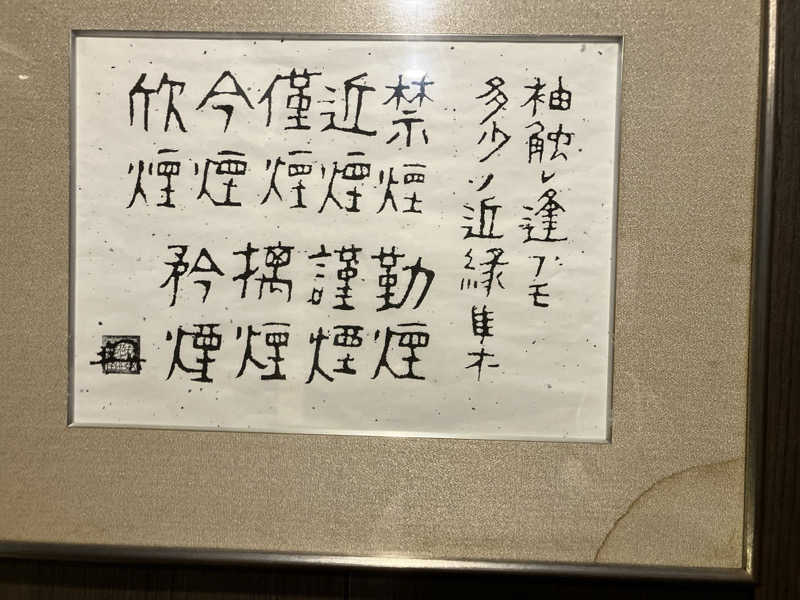 袖触レ逢フモ
多少ノ近縁集
禁煙
近煙
僅煙
今煙
欣煙
勤煙
謹煙
擒煙
矜煙